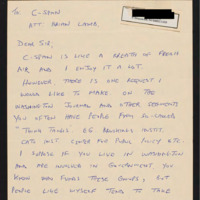 To C-SPAN
ATT. BRIAN LAMB.
DEAR SIR,
C-SPAN IS LIKE A BREATH OF FRESH
AIR AND I ENJOY IT A LOT.
HOWEVER THERE IS ONE REQUEST I
WOULD LIKE TO MAKE ON THE
WASHINGTON JOURNAL AND OTHER SEGMENTS
YOU OFTEN HAVE PEOPLE FROM SO-CALLED
"THINK TANKS" EG BROOKINGS INSTIT.
CATO INST CENTER FOR PUBLIC POLICY ETC.
I SUPPOSE IF YOU LIVE IN WASHINGTON
AND ARE INVOLVED IN GOVERNMENT YOU
KNOW WHO FUNDS THESE GROUPS, BUT
PEOPLE LIKE MYSELF TEND TO TAKE